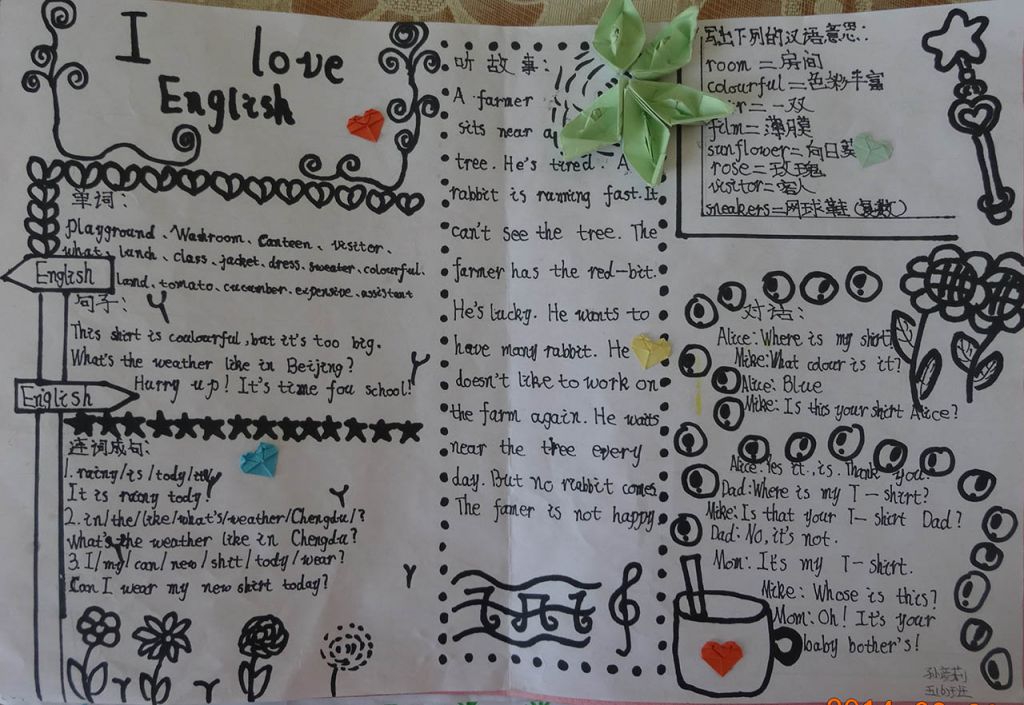 I love
English
单词:
playground、Washroom、Canteen、visitor、
what、lanch、class、jacket、dress、sweater、colourful、
land、tomato、cucumber、expensive、assistant
English
句子:
This shirt is coulourful,but it's too big.
What's the weather like in Beijing?
Hurry up! It's time fou school!
English
连词成句:
1. rainy/is/tody/
It is rainy tody!
2. in/the/like/what's/weather/Chengdu/?
what's the weather like in Chengdu?
3. I/my/can/new/shitt/tody/wear?
Can I wear my new shirt today?
听故事:
A farmer
sits near a
tree. He's tired. A
rabbit is running fast. It
can't see the tree. The
farmer has the red-bit.
He's lucky. He wants to
have many rabbit. He
doesn't like to work on
the farm again. He waits
near the tree every
day. But no riabbit comes
The famer is not happy
写出下列的汉语意思:
room=房间
colourful=色彩丰富
=一双
film=薄膜
sunflower=向日葵
rose=玫瑰
visitor=客人
sneakers=网球鞋(复数)
对话:
Alice: Where is my shirt
Mike: What colour is it?
Alice: Blue
Mike: Is this your shirt Alice?
Alice: Yes it, is. Thank you.
Dad: Where is my T-shirt?
Mike: Is that your T-shirt Dad?
Dad: NO, it's not.
Mom: It's my T-shirt.
Mike: Whose is this?
Mom: Oh! It's your
baby bother's!